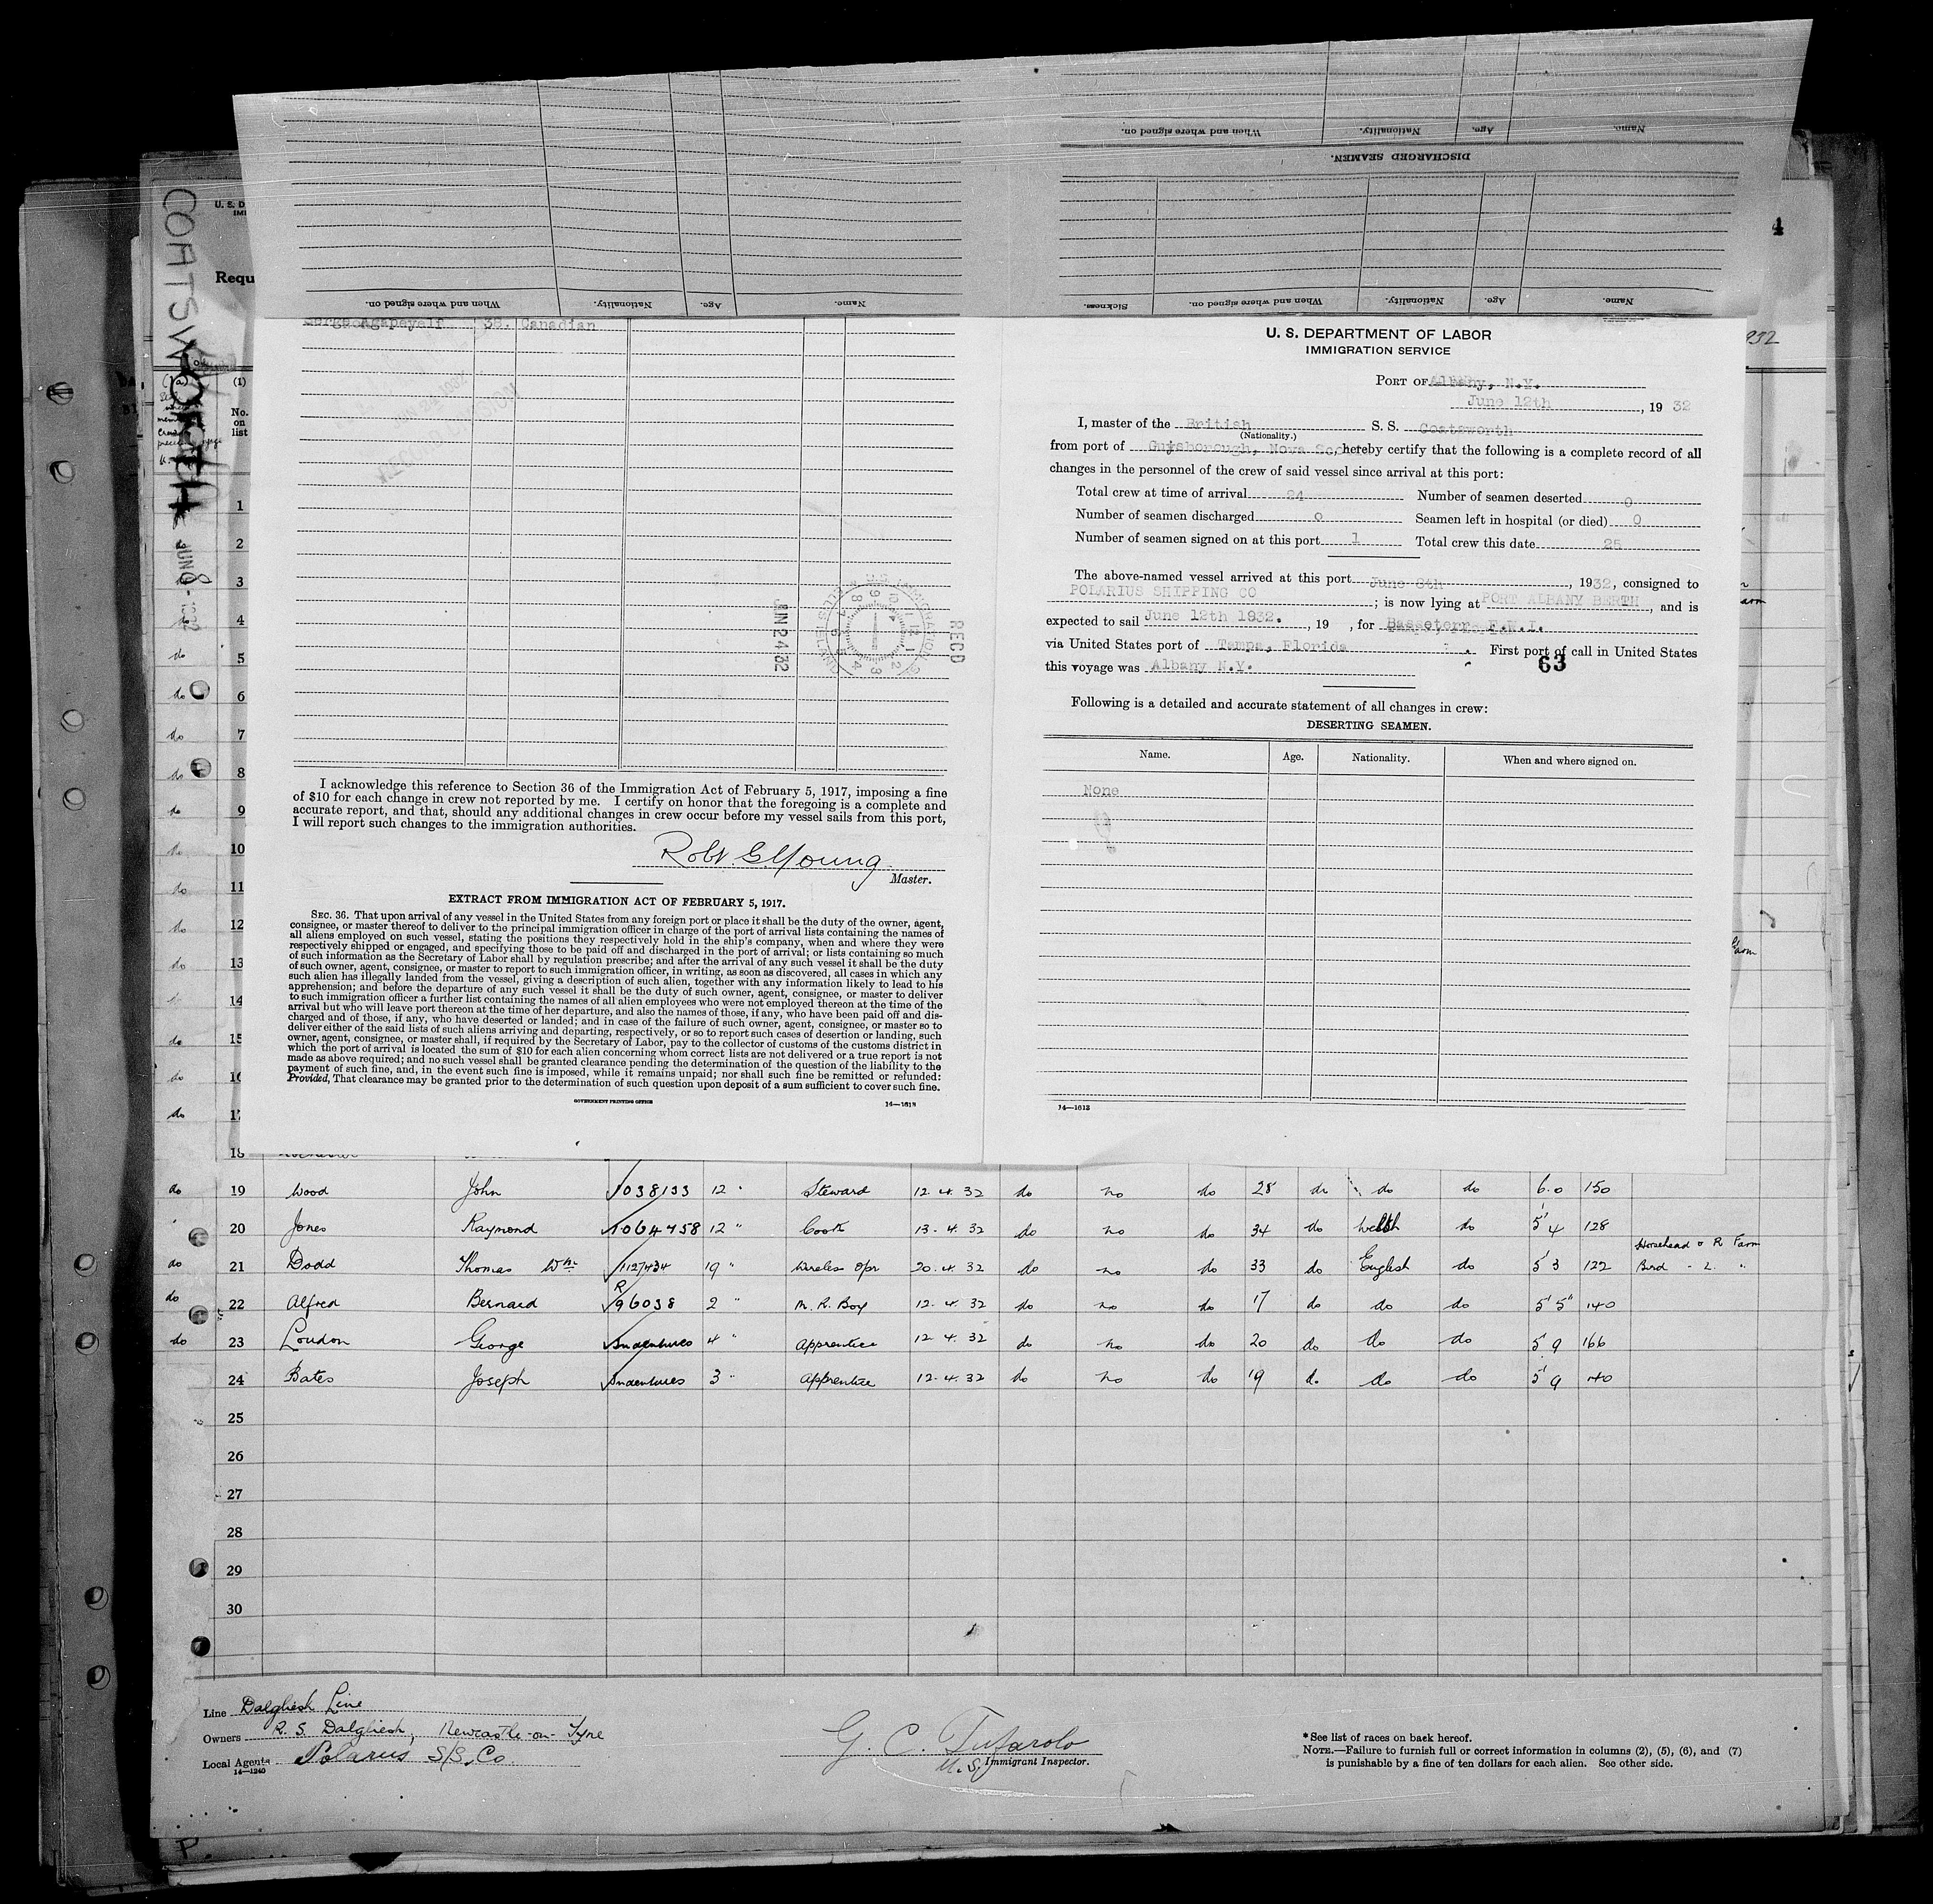 When and where signed on.
Nationality.
Age.
Name.
DISCHARGED SEAMEN.
Name.
Age.
Nationality.
When and where signed on.
Name.
Age.
Nationality.
When and where signed on.
Sickness.
COATSWORTH
JUN 8 - 1932
U. S. D
IMI
Requ
4
932
(1)
No.
on
list
38. Canadian
U. S. DEPARTMENT OF LABOR
IMMIGRATION SERVICE
PORT OF Albany, N.Y.
June 12th, 19 32
I, master of the British S. S. Coatsworth
(Nationality.)
from port of Guysborough, Nova Sco, hereby certify that the following is a complete record of all
changes in the personnel of the crew of said vessel since arrival at this port:
Total crew at time of arrival 24 Number of seamen deserted 0
Number of seamen discharged o Seamen left in hospital (or died) 0
Number of seamen signed on at this port 1 Total crew this date 25
The above-named vessel arrived at this port June 8th, 1932, consigned to
POLARIUS SHIPPING CO; is now lying at PORT ALBANY BERTH, and is
expected to sail June 12th 1932., 19 , for Basseterr F.W.I.
via United States port of Tampa, Florida. First port of call in United States
this voyage was Albany N.Y.
63
Following is a detailed and accurate statement of all changes in crew:
DESERTING SEAMEN.
Name. Age. Nationality. When and where signed on.
None
14—1613
REC'D
JUN 24 32
I acknowledge this reference to Section 36 of the Immigration Act of February 5, 1917, imposing a fine
of $10 for each change in crew not reported by me. I certify on honor that the foregoing is a complete and
accurate report, and that, should any additional changes in crew occur before my vessel sails from this port,
I will report such changes to the immigration authorities.
Robt. G. Young
Master.
EXTRACT FROM IMMIGRATION ACT OF FEBRUARY 5, 1917.
SEC. 36. That upon arrival of any vessel in the United States from any foreign port or place it shall be the duty of the owner, agent,
consignee, or master thereof to deliver to the principal immigration officer in charge of the port of arrival lists containing the names of
all aliens employed on such vessel, stating the positions they respectively hold in the ship's company, when and where they were
respectively shipped or engaged, and specifying those to be paid off and discharged in the port of arrival; or lists containing so much
of such information as the Secretary of Labor shall by regulation prescribe; and after the arrival of any such vessel it shall be the duty
of such owner, agent, consignee, or master to report to such immigration officer, in writing, as soon as discovered, all cases in which any
such alien has illegally landed from the vessel, giving a description of such alien, together with any information likely to lead to his
apprehension; and before the departure of any such vessel it shall be the duty of such owner, agent, consignee, or master to deliver
to such immigration officer a further list containing the names of all alien employees who were not employed thereon at the time of the
arrival but who will leave port thereon at the time of her departure, and also the names of those, if any, who have been paid off and dis-
charged and of those, if any, who have deserted or landed; and in case of the failure of such owner, agent, consignee, or master so to
deliver either of the said lists of such aliens arriving and departing, respectively, or so to report such cases of desertion or landing, such
owner, agent, consignee, or master shall, if required by the Secretary of Labor, pay to the collector of customs of the customs district in
which the port of arrival is located the sum of $10 for each alien concerning whom correct lists are not delivered or a true report is not
made as above required; and no such vessel shall be granted clearance pending the determination of the question of the liability to the
payment of such fine, and, in the event such fine is imposed, while it remains unpaid; nor shall such fine be remitted or refunded:
Provided, That clearance may be granted prior to the determination of such question upon deposit of a sum sufficient to cover such fine.
GOVERNMENT PRINTING OFFICE 14—1613
1
2
3
do 4
do 5
do 6
do 7
do 8
do 9
do 10
do 11
do 12
do 13
14
do 15
do 16
do 17
18
do 19 Wood John 1038133 12 " Steward 12.4.32 do no do 28 do do do 6.0 150
20 Jones Raymond 1064758 12 " Cook 13.4.32 do no do 34 do Welsh do 5' 4 128
do 21 Dodd Thomas Wm 1127434 19 " Wireless Opr 20.4.32 do no do 33 do English do 5' 3 122 Horsehead o R Farm Bird - L. "
do 22 Alfred Bernard R 96038 2 " M. R. Boy 12.4.32 do no do 17 do do do 5' 5" 140
do 23 Loudon George Indentures 4 " Apprentice 12.4.32 do no do 20 do do do 5' 9 166
24 Bates Joseph Indentures 3 " Apprentice 12.4.32 do no do 19 do do do 5' 9 140
25
26
27
28
29
30
Line Dalgliesh Line
Owners R. S. Dalgliesh, Newcastle-on-Tyne
Local Agents Polarus S/S. Co.
14—1240
G. C. Tufarolo
U.S. Immigrant Inspector.
* See list of races on back hereof.
NOTE.—Failure to furnish full or correct information in columns (2), (5), (6), and (7)
is punishable by a fine of ten dollars for each alien. See other side.